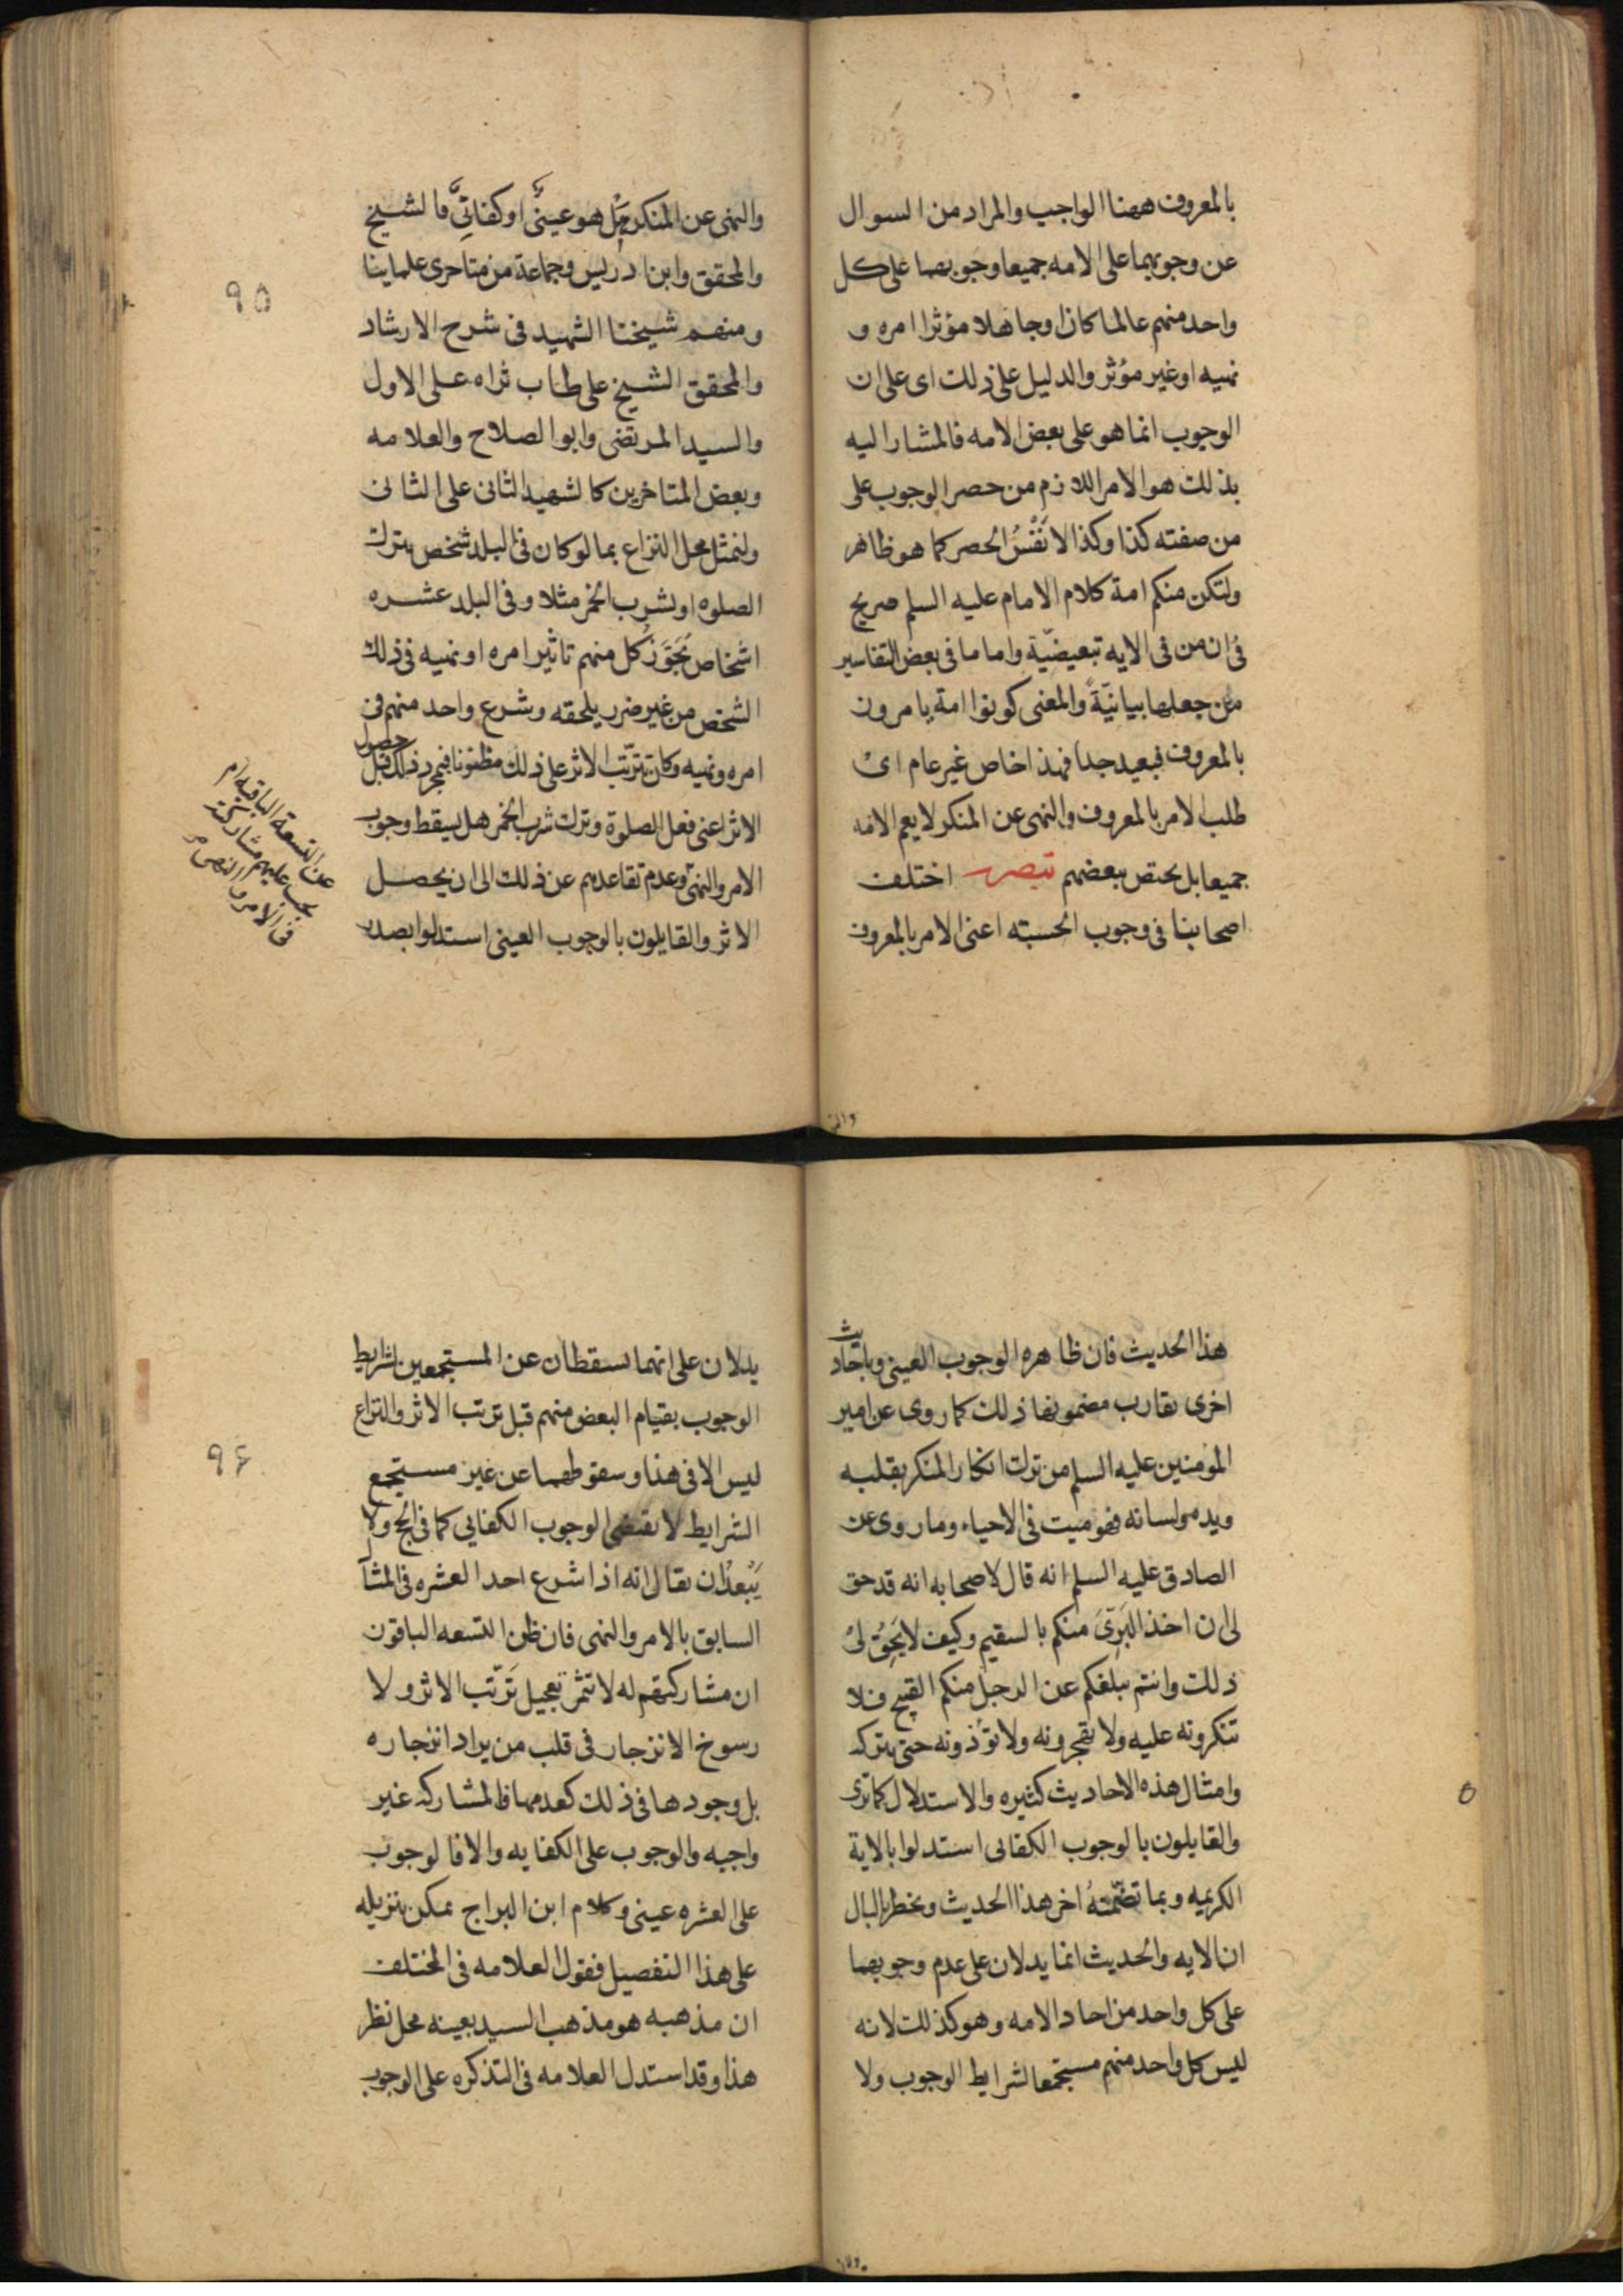 بالمعروف ههنا الواجب والمراد من السوال
عن وجوبهما على الامه جميعا وجوبهما على كل
واحد منهم عالما كان او جاهلا مؤثرا امره و
نهيه او غير مؤثر والدليل على ذلك اى على ان
الوجوب انما هو على بعض الامه فالمشار اليه
بذلك هو الامر اللازم من حصر الوجوب على
من صفته كذا وكذا لا نَفْسُ الحصر كما هو ظاهر
ولتكن منكم امة كلام الامام عليه السلم صريح
فى ان من فى الايه تبعيضيّة واما ما فى بعض التفاسير
من جعلها بيانيّةً والمعنى كونوا امة يامرون
بالمعروف فبعيد جدا فهذا خاص غير عام اى
طلب الامر بالمعروف والنهى عن المنكر لا يعم الامه
جميعا بل يختص ببعضهم تبصره اختلف
اصحابنا فى وجوب الحسبته اعنى الامر بالمعروف
والنهى
والنهى عن المنكر هَل هو عينىٌّ او كفائىٌّ فالشيخ
والمحقق وابن ادريس وجماعة من متاخرى علماينا
ومنهم شيخنا الشهيد فى شرح الارشاد
والمحقق الشيخ على طاب ثراه على الاول
والسيد المرتضى وابو الصلاح والعلامه
وبعض المتاخرين كالشهيد الثانى على الثانى
ولنمثل محل النزاع بما لو كان فى البلد شخص يترك
الصلوه او يشرب الخمر مثلا وفى البلد عشره
اشخاص يُجَوّزُ كل منهم تاثير امره او نهيه فى ذلك
الشخص من غير ضرر يلحقه وشرع واحد منهم فى
امره ونهيه وكان ترتّب الاثر على ذلك مظنونا فبمجرد ذلك قبل حصول
الاثر اعنى فعل الصلوة وترك شرب الخمر هل يسقط وجوب
الامر والنهى وعدم تقاعدهم عن ذلك الى ان يحصل
الاثر والقايلون بالوجوب العينى استدلوا بصدر
عن التسعة الباقيه ام
يجب عليهم مشاركته
فى الامر والنهى
٩٥
هذا الحديث فان ظاهره الوجوب العينى وباحاديث
اخرى تقارب مضمونها ذلك كما روى عن امير
المومنين عليه السلم من ترك انكار المنكر بقلبه
ويده ولسانه فهو ميت فى الاحياء وما روى عن
الصادق عليه السلم انه قال لاصحابه انه قد حق
لى ان اخذ البَرِىَ منكم بالسقيم وكيف لا يَحِقُّ لى
ذلك وانتم يبلغكم عن الرجل منكم القبيح فلا
تنكرونه عليه ولا تهجرونه ولا تؤذونه حتى يتركه
وامثال هذه الاحاديث كثيره والاستدلال كما ترى
والقايلون بالوجوب الكفائى استدلوا بالاية
الكريمه وبما تضمّنَهُ اخر هذا الحديث ويخطر بالبال
ان الايه والحديث انما يدلان على عدم وجوبهما
على كل واحد من احاد الامه وهو كذلك لانه
ليس كل واحد منهم مستجمعا لشرايط الوجوب ولا
يدلان على انهما يسقطان عن المستجمعين لشرايط
الوجوب بقيام البعض منهم قبل ترتب الاثر والنزاع
ليس الا فى هذا وسقوطهما عن غير مستجمع
الشرايط لا يقتضى الوجوب الكفايى كما فى الحج ولا
يَبْعدُ ان يقال انه اذا شرع احد العشره فى المثال
السابق بالامر والنهى فان ظن التسعه الباقون
ان مشاركتهم له لا تثمر تعجيل تَرَتّب الاثر ولا
رسوخ الانزجار فى قلب من يراد انزجاره
بل وجودها فى ذلك كعدمها فالمشاركه غير
واجبه والوجوب على الكفايه والا فالوجوب
على العشره عينى وكلام ابن البراج يمكن تنزيله
على هذا التفصيل فقول العلامه فى المختلف
ان مذهبه هو مذهب السيد بعينه محل نظر
هذا وقد استدل العلامه فى التذكره على الوجوب
٩۶